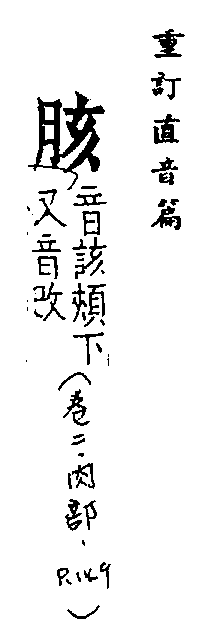 重訂直音篇
胲
音該頰下
又音改
(卷二·肉部·
P.149)